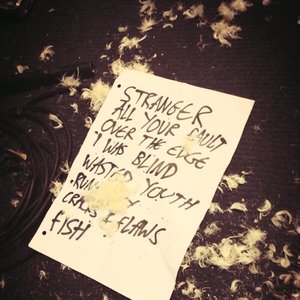 STRANGER
ALL YOUR FAULT
OVER THE EDGE
I WAS BLIND
WASTED YOUTH
CRACKS & FLAWS
FISH